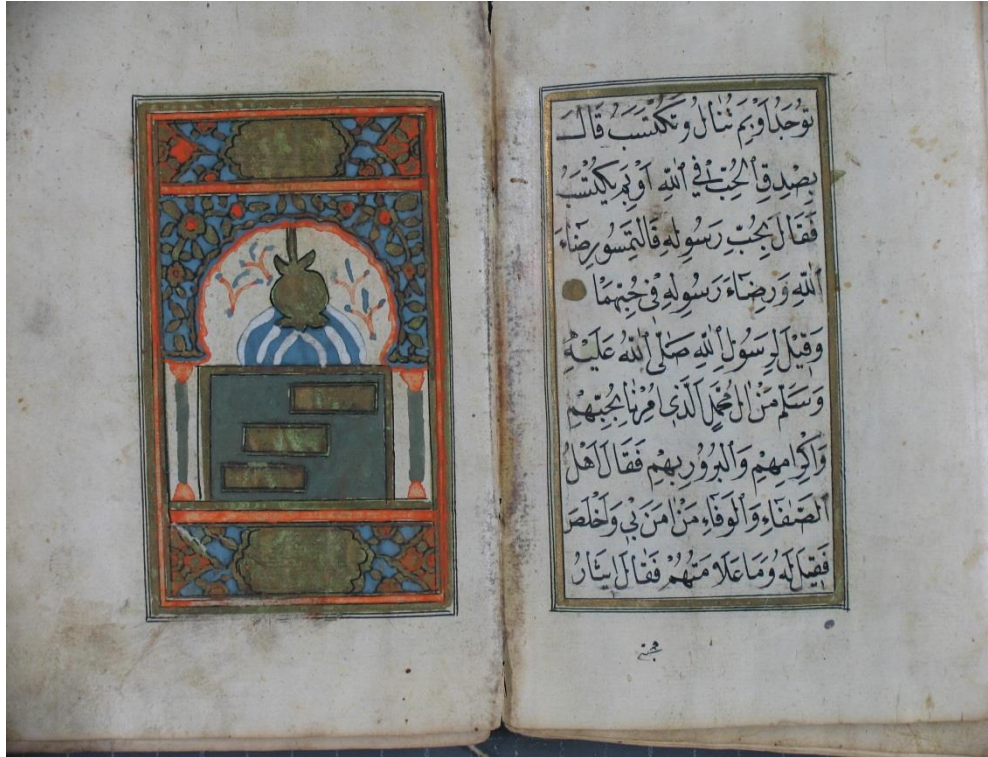 تُوجَدُ اَوْ بِمَ تُنَالُ وَتُكْتَسَبُ قَالَ
بِصِدْقِ الْحُبِّ فِي اللهِ اَوْ بِمَ يُكْتَسَبُ
فَقَالَ بِحُبِّ رَسُولِهِ فَالْتَمِسُو رِضَاءَ
اللهِ وَرِضَاءَ رَسُولِهِ فِي حُبِّهِمَا
وَقِيلَ لِرَسُولِ اللهِ صَلَّى اللهُ عَلَيْهِ
وَسَلَّمَ مَنْ اٰلُ مُحَمَّدٍ الَّذِي اُمِرْنَا بِحُبِّهِمْ
وَاِكْرَامِهِمْ وَالْبُرُورِ بِهِمْ فَقَالَ اَهْلُ
الصَّفَاءِ وَالْوَفَاءِ مَنْ اٰمَنَ بِي وَاَخْلَصَ
فَقِيلَ لَهُ وَمَا عَلَامَتُهُمْ فَقَالَ اِيثَارُ